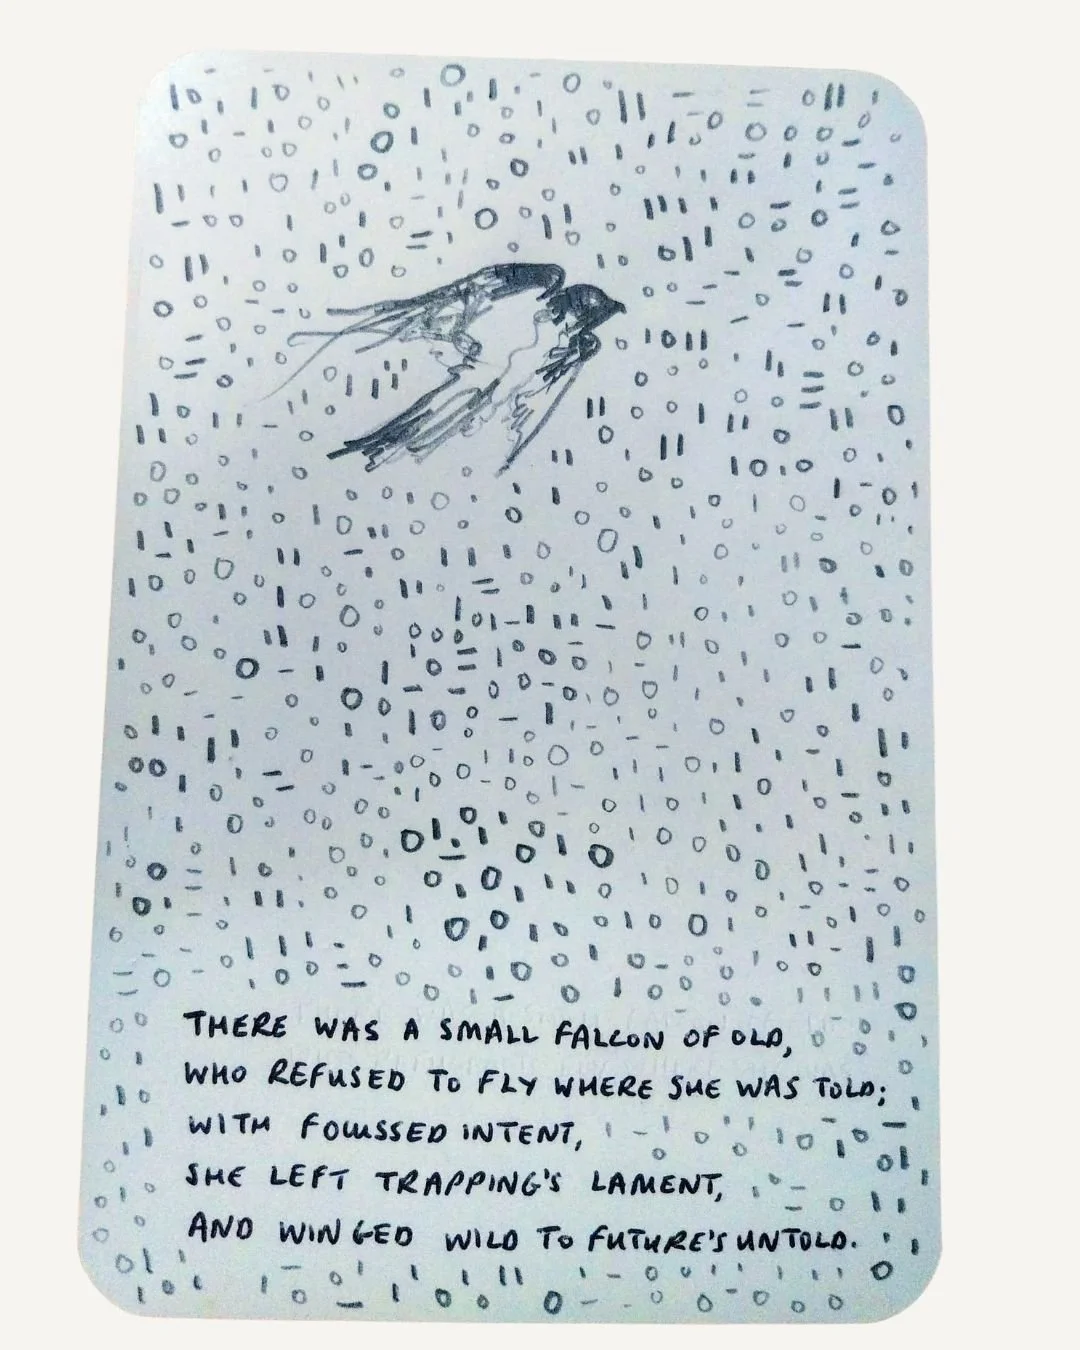 THERE WAS A SMALL FALCON OF OLD,
WHO REFUSED TO FLY WHERE SHE WAS TOLD;
WITH FOCUSSED INTENT,
SHE LEFT TRAPPING'S LAMENT,
AND WINGED WILD TO FUTURE'S UNTOLD.